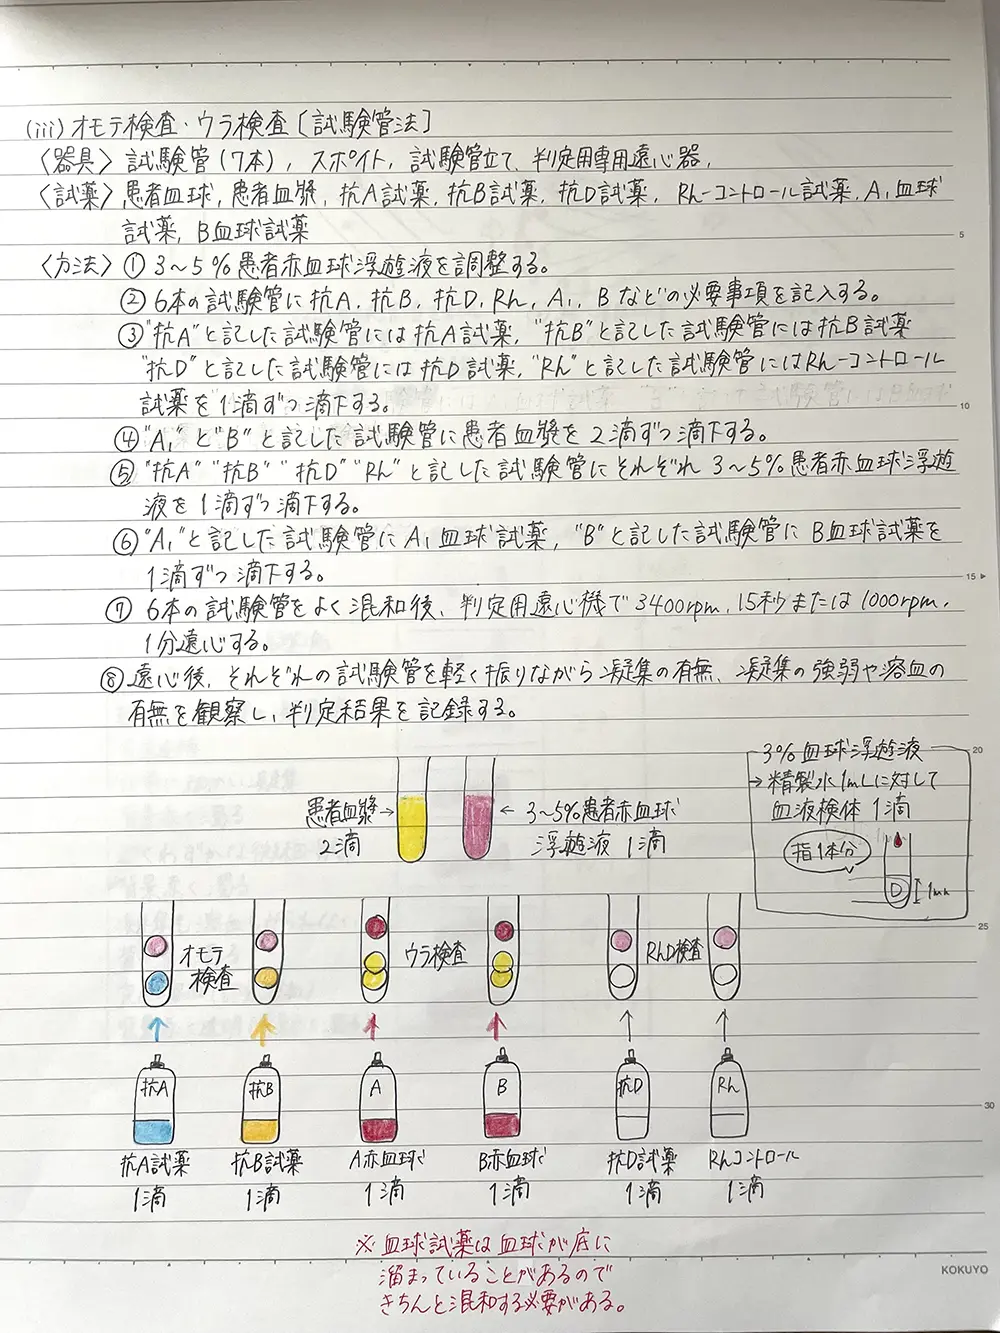 (iii) オモテ検査・ウラ検査〔試験管法〕
〈器具〉 試験管(7本), スポイト, 試験管立て, 判定用専用遠心器,
〈試薬〉患者血球, 患者血漿, 抗A試薬, 抗B試薬, 抗D試薬, Rh-コントロール試薬, A₁血球
試薬, B血球試薬
〈方法〉 ① 3~5%患者赤血球浮遊液を調整する。
② 6本の試験管に抗A, 抗B, 抗D, Rh, A₁, Bなどの必要事項を記入する。
③ "抗A"と記した試験管には抗A試薬, "抗B"と記した試験管には抗B試薬
"抗D"と記した試験管には抗D試薬, "Rh"と記した試験管にはRh-コントロール
試薬を1滴ずつ滴下する。
④ "A₁"と"B"と記した試験管に患者血漿を2滴ずつ滴下する。
⑤ "抗A" "抗B" "抗D" "Rh"と記した試験管にそれぞれ3~5%患者赤血球浮遊
液を1滴ずつ滴下する。
⑥ "A₁"と記した試験管にA₁血球試薬, "B"と記した試験管にB血球試薬を
1滴ずつ滴下する。
⑦ 6本の試験管をよく混和後, 判定用遠心機で3400rpm, 15秒または1000rpm,
1分遠心する。
⑧ 遠心後, それぞれの試験管を軽く振りながら凝集の有無, 凝集の強弱や溶血の
有無を観察し, 判定結果を記録する。
3%血球浮遊液
→精製水1mLに対して
血液検体 1滴
指1本分
D
1mm
患者血漿→
2滴
←3~5%患者赤血球
浮遊液 1滴
オモテ
検査
ウラ検査
RhD検査
抗A
抗B
A
B
抗D
Rh
抗A試薬
1滴
抗B試薬
1滴
A赤血球
1滴
B赤血球
1滴
抗D試薬
1滴
Rhコントロール
1滴
※血球試薬は血球が底に
溜まっていることがあるので
きちんと混和する必要がある。
5
10
15
20
25
30
KOKUYO